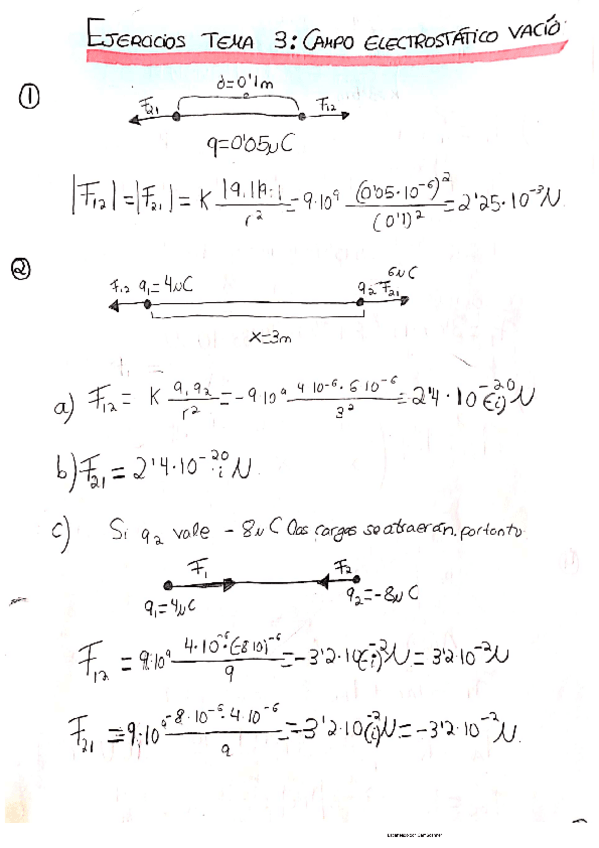 EJERCICIOS TEMA 3: CAMPO ELECTROSTÁTICO VACÍO
① 
d=0'1m
F₂₁ F₁₂
q=0'05μC
|F₁₂|=|F₂₁|= K |q₁||q₂| / r² = 9·10⁹ (0'05·10⁻⁶)² / (0'1)² = 2'25·10⁻³N
②
F₁₂ q₁=4μC q₂= 6μC F₂₁
x=3m
a) F₁₂ = K q₁q₂ / r² = -9·10⁹ 4·10⁻⁶·6·10⁻⁶ / 3² = 2'4·10⁻²⁰(-i)N
b) F₂₁ = 2'4·10⁻²⁰ i N
c) Si q₂ vale -8μC las cargas se atraerán, por tanto
F₁ F₂
q₁=4μC q₂=-8μC
F₁₂ = 9·10⁹ 4·10⁻⁶·(-8·10)⁻⁶ / 9 = -3'2·10⁻²(-i)N = 3'2·10⁻²N
F₂₁ = 9·10⁹ -8·10⁻⁶·4·10⁻⁶ / 9 = -3'2·10⁻²(i)N = -3'2·10⁻²N